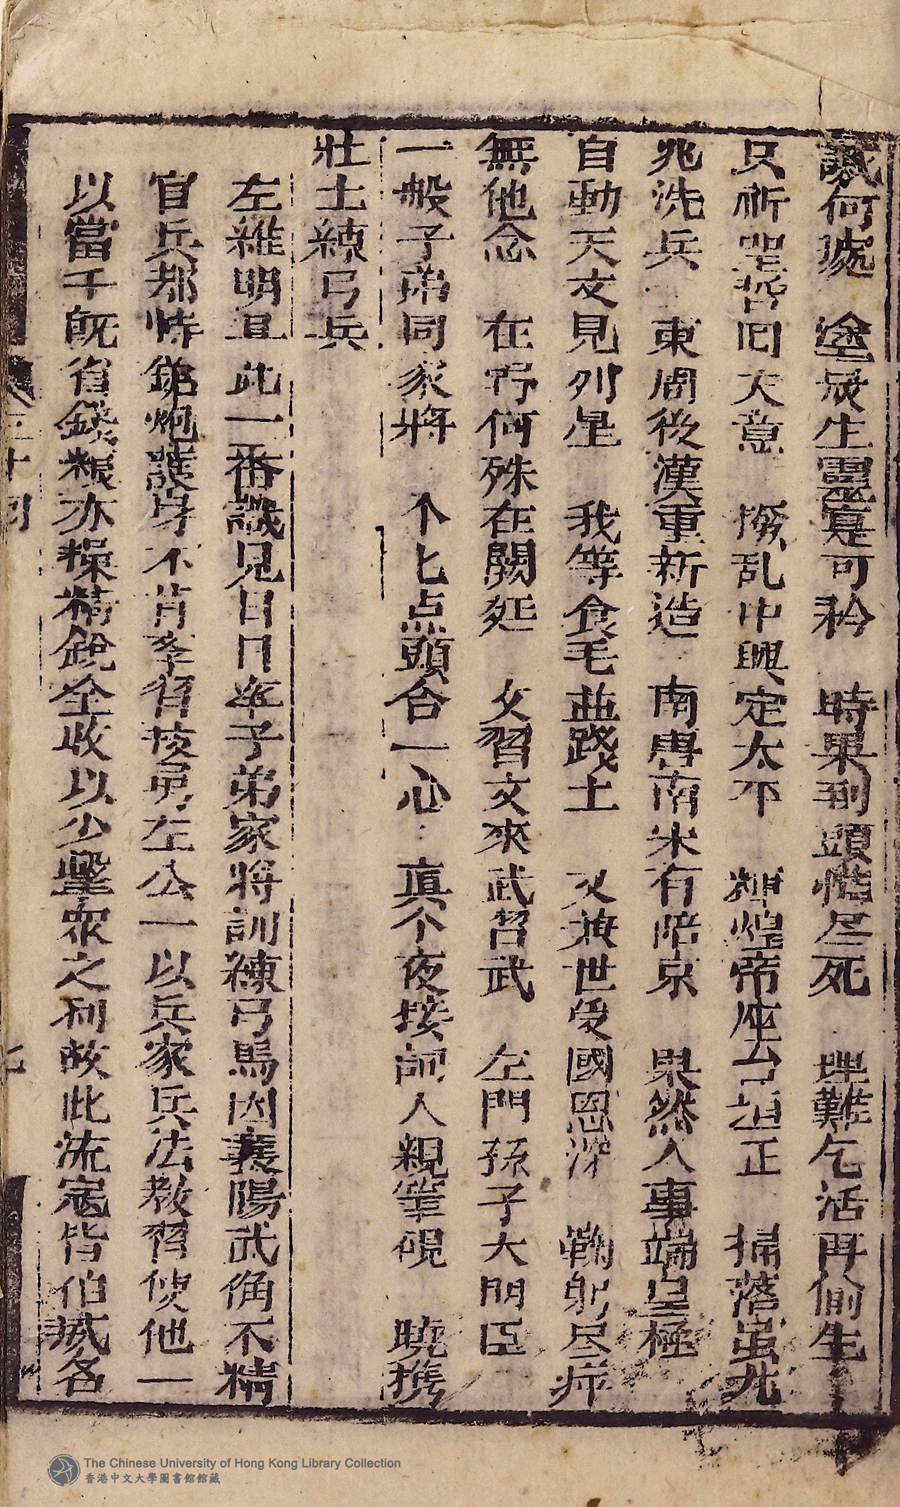 何處 塗炭生靈寔可矜 時果到頭惟尽死 理難乞活再偷生
只祈聖哲回天意 撥乱中興定太平 輝煌帝座台垣正 掃落蚩尤
兆洗兵 東周後漢重新造 南唐南宋有陪京 果然人事端皇極
自動天文見列星 我等食毛並踐土 又兼世受國恩深 鞠躬尽瘁
無他念 在野何殊在闕廷 文習文來武習武 左門孫子大門臣
一般子弟同家將 个匕点頭合一心 真个夜接詞人親筆硯 曉携
壯士練弓兵
左維明且此一番識見日日率子弟家將訓練弓馬因襄陽武備不精
官兵都恃銃炮護身不肯學習技勇左公一以兵家兵法教習使他一
以當千既省錢粮亦操精銳全收以少擊衆之利故此流寇皆伯城名